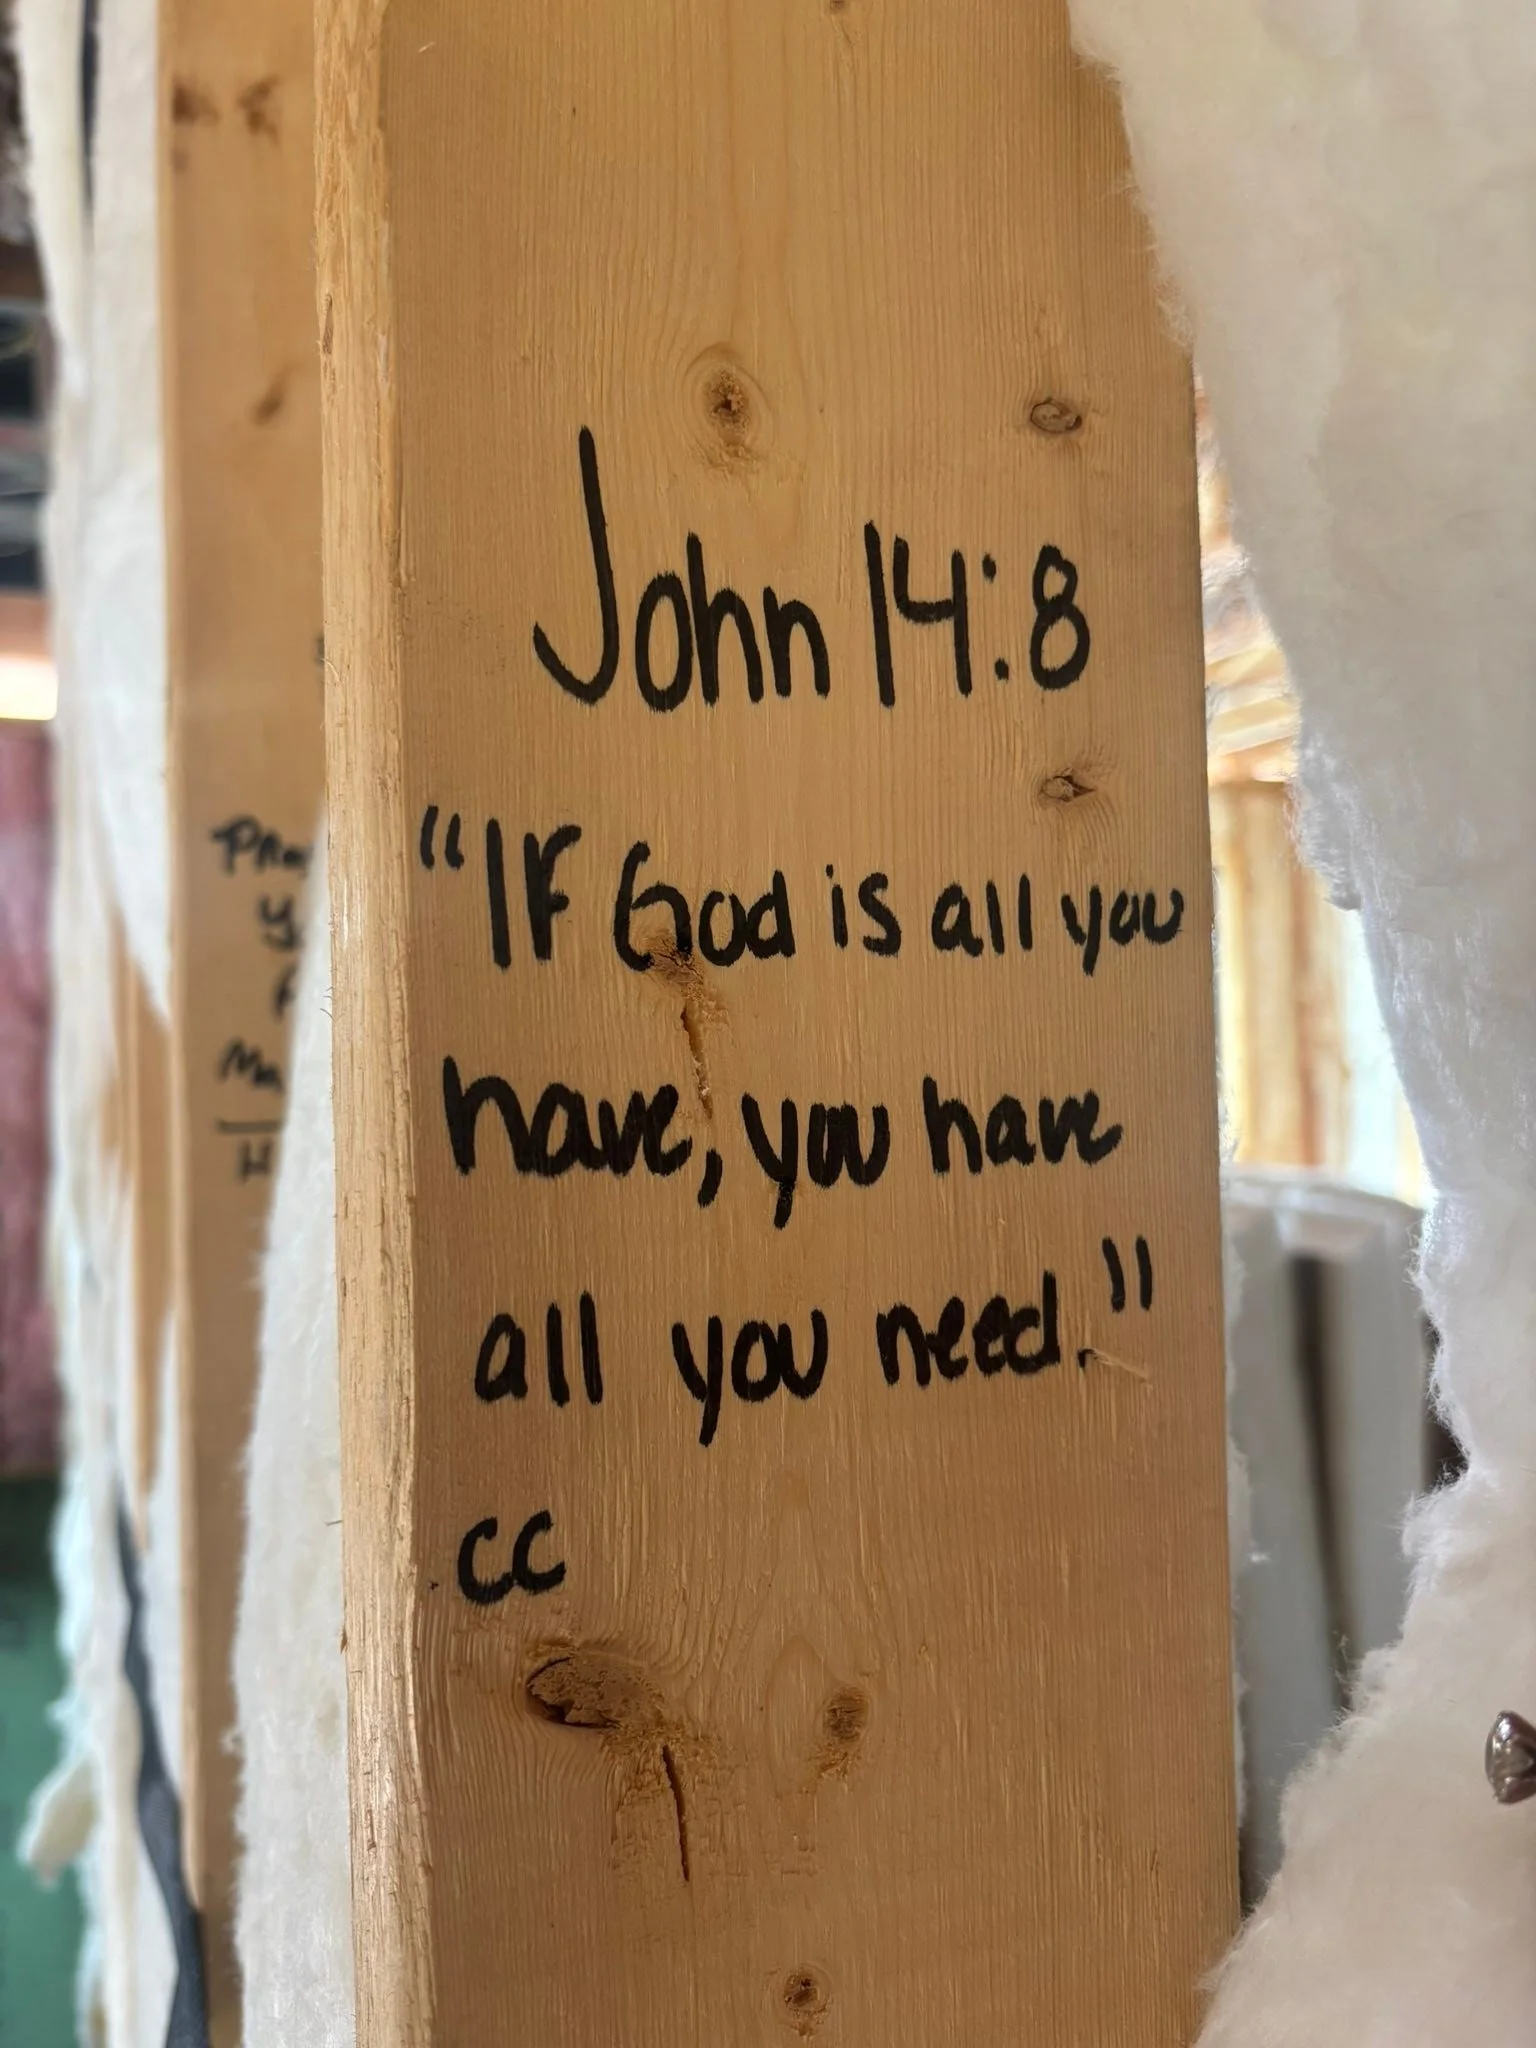 John 14:8
"IF God is all you
have, you have
all you need."
CC